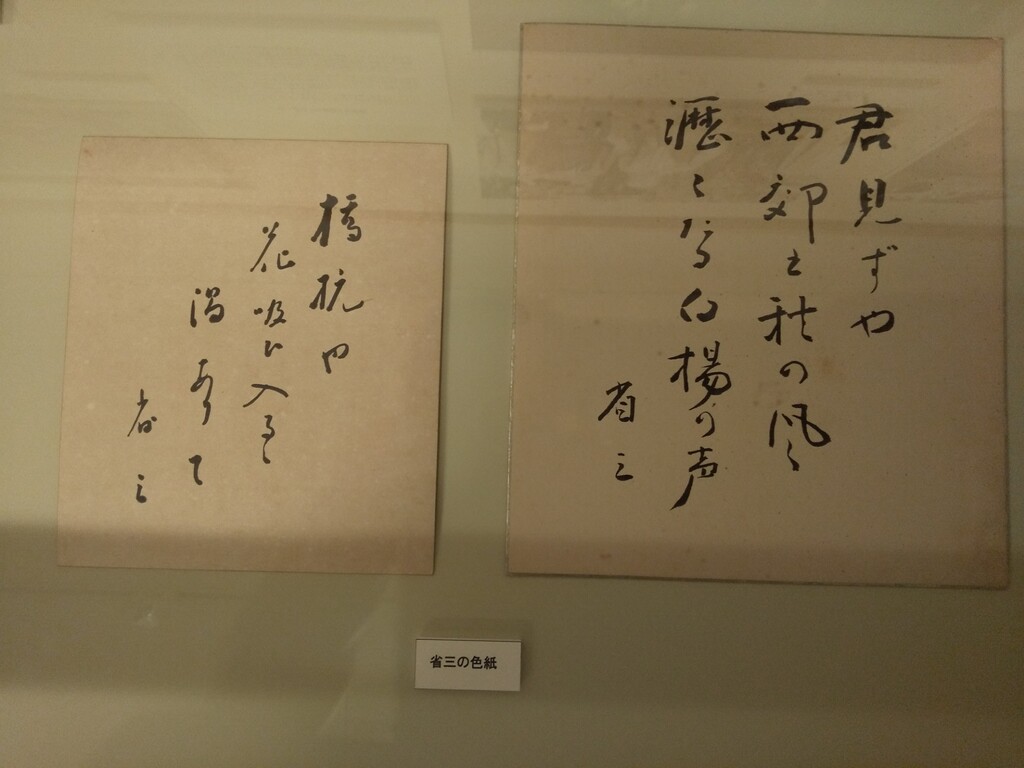 君見ずや
西郊 秋の風
瀝々なる白楊か声
省三
橋杭や
花吸ひ入るゝ
渦ありて
省三
省三の色紙